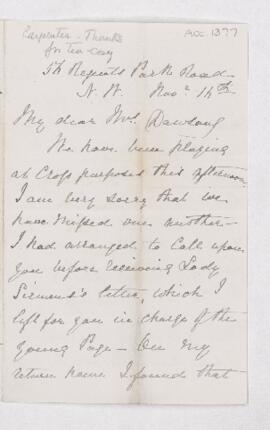 Carpenter - Thanks
for Tea Cosy
Acc 1377
56 Regents Park Road
N. W. Nov 14th
My dear Mrs. Dawbarn
We have been playing
at Cross purposes this afternoon
I am very sorry that we
have missed one another —
I had arranged to call upon
you before receiving Lady
Siemens's letter, which I
left for you in charge of the
young Page — On my
return home I found that